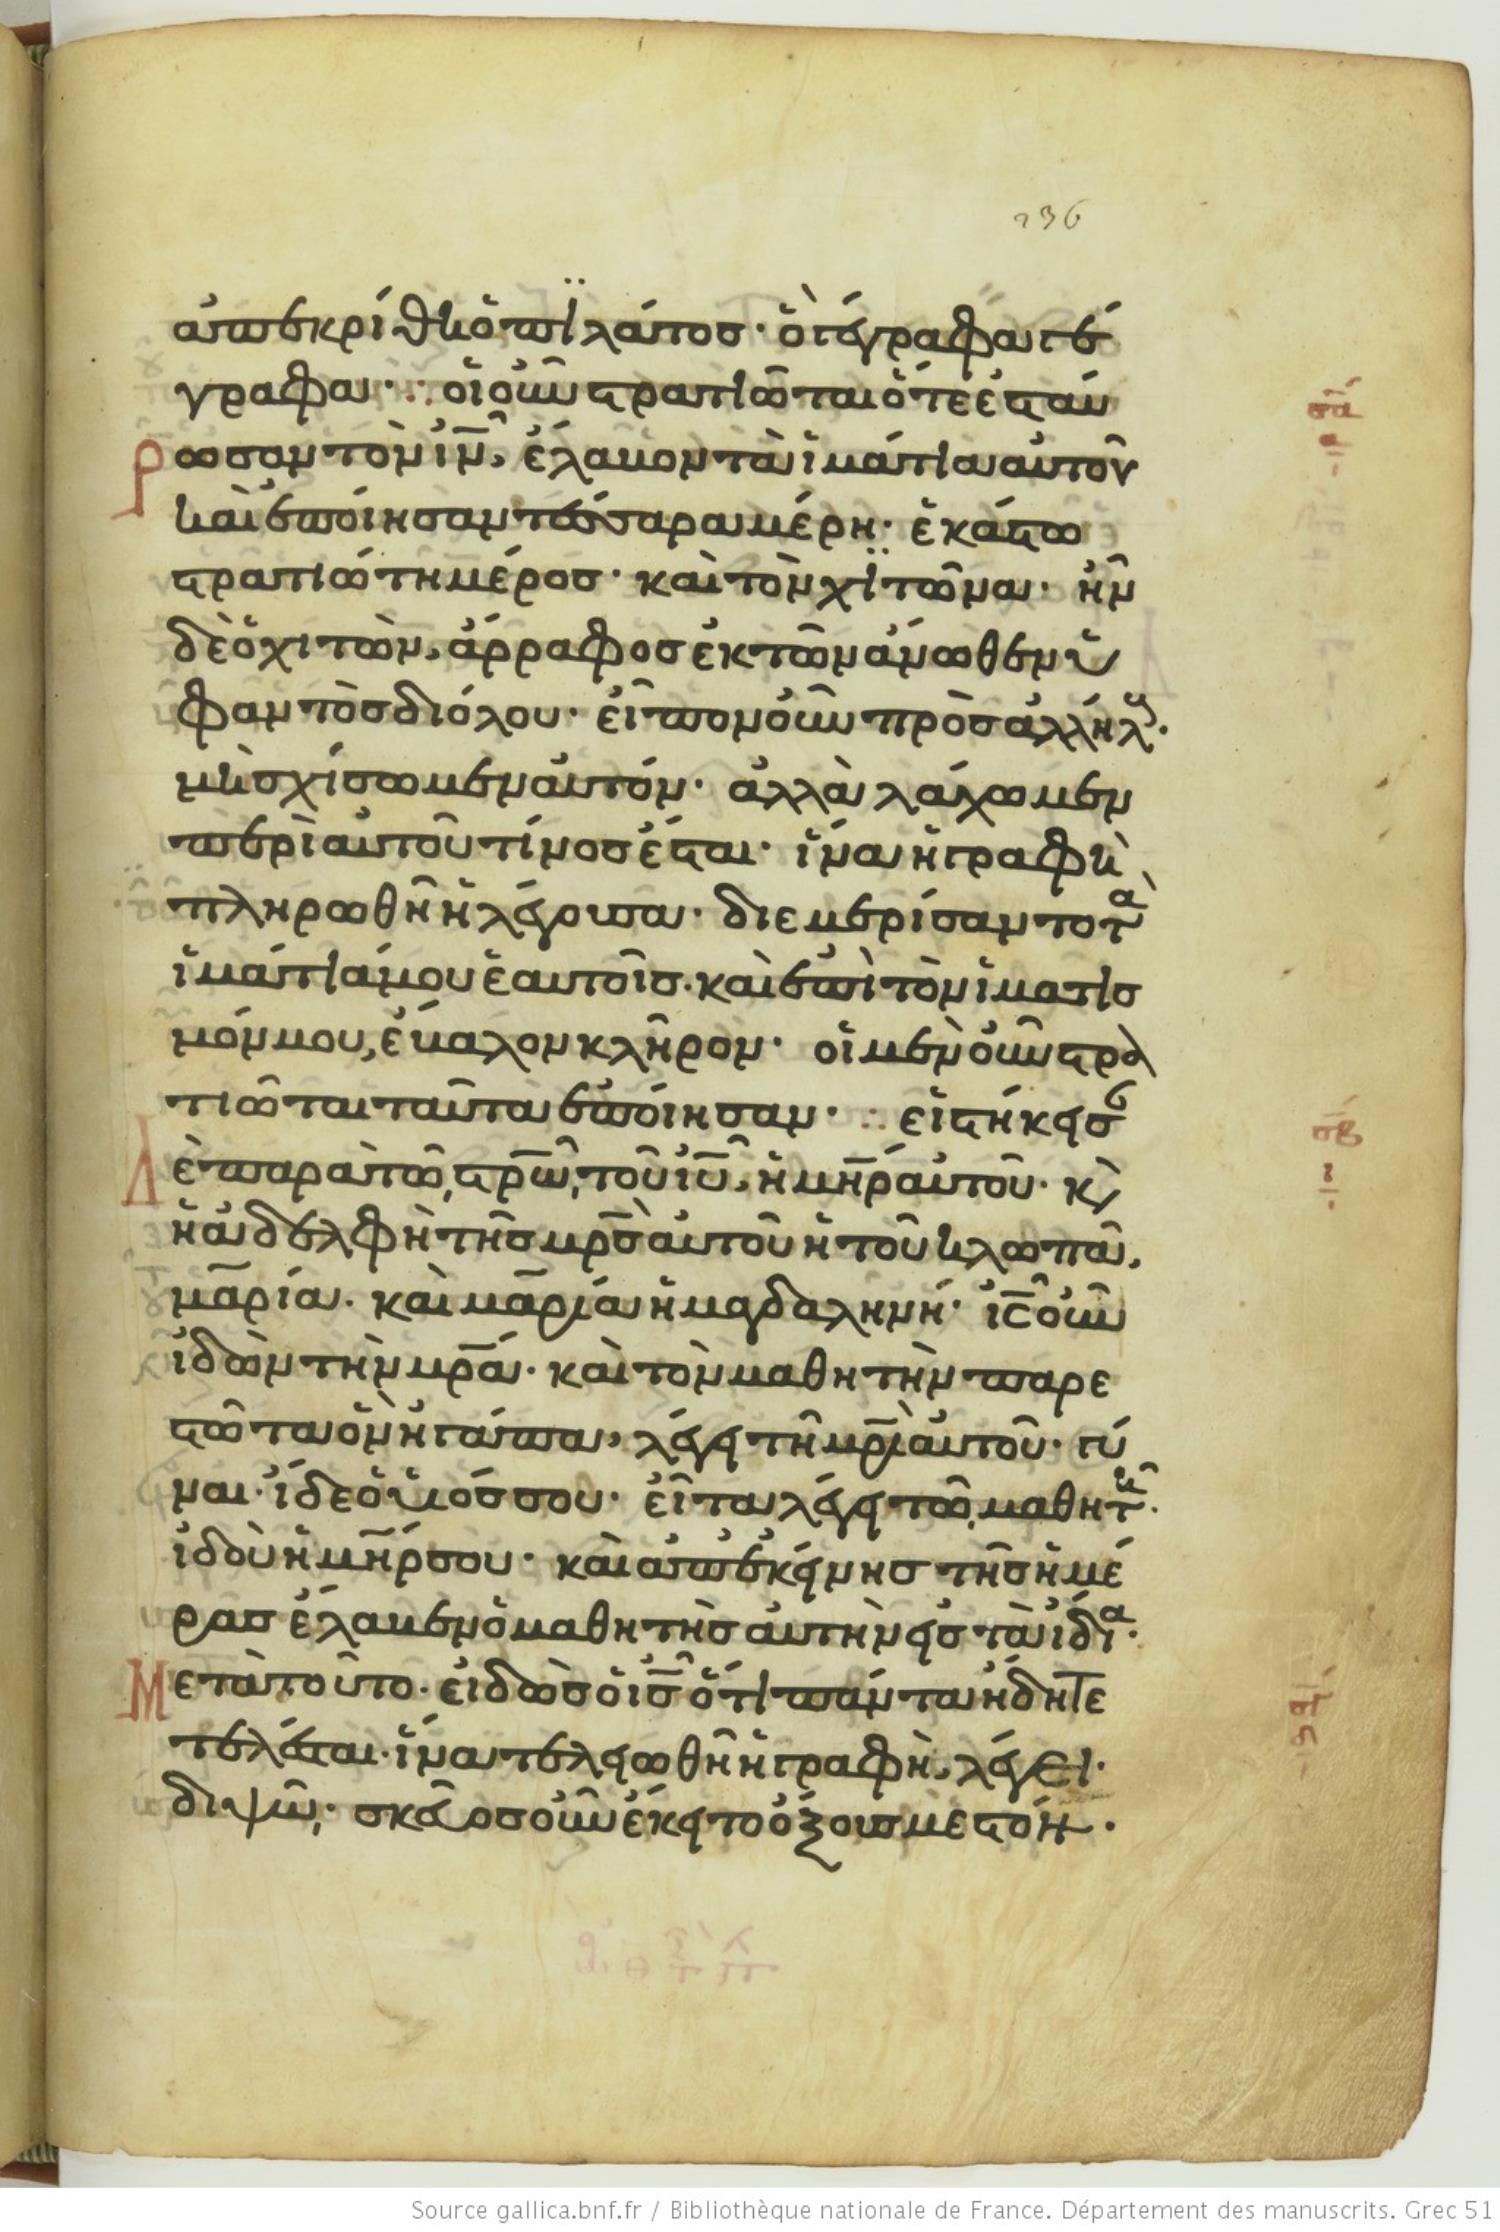 236
ἀπεκρίθη ὁ πϊλάτος· ὃ γέγραφα γέ
γραφα· οἱ οὖν στρατιῶται ὅτε ἐσταύ
ρωσαν τὸν ιν, ἔλαβον τὰ ἱμάτια αὐτοῦ
καὶ ἐποίησαν τέσσαρα μέρη· ἑκάστω
στρατιώτη μέρος· καὶ τὸν χϊτῶνα· ἦν
δὲ ὁ χιτὼν, ἄρραφος ἐκ τῶν ἄνωθεν ὑ
φαντὸς διόλου· εἶπον οὖν πρὸς ἀλλήλους·
μὴ σχίσωμεν αὐτόν· ἀλλὰ λάχωμεν
περὶ αὐτοῦ τίνος ἔσται· ἵνα ἡ γραφὴ
πληρωθῆ ἡ λέγουσα· διεμερίσαντο τὰ
ἱμάτιά μου ἑαυτοῖς· καὶ ἐπὶ τὸν ἱματισ
μόν μου, ἔβαλον κλῆρον· οἱ μὲν οὖν στρα
τιῶται ταῦτα ἐποίησαν· εἱστήκεισ
Δὲ παρὰ τῶ στρω τοῦ ιυ, ἡ μηρ αὐτοῦ· κ
ἡ ἀδελφὴ τῆς μρς αὐτοῦ ἡ τοῦ κλωπᾶ,
μαρία· καὶ μαρία ἡ μαγδαληνή· ις οὖν
ἰδὼν τὴν μρα· καὶ τὸν μαθητὴν παρε
στῶτα ὃν ἠγάπα, λέγει τῆ μρι αὐτοῦ· γύ
ναι· ἴδε ὁ υἱός σου· εἶτα λέγει τῶ μαθητῆ·
ἰδοὺ ἡ μηρ σου· καὶ ἀπ' ἐκείνης τῆς ἡμέ
ρας ἔλαβεν ὁ μαθητὴς αὐτὴν εἰς τὰ ἴδια·
Μετὰ τοῦτο· εἰδὼς ὁ ις ὅτι πάντα ἤδη τε
τέλεσται· ἵνα τελειωθῆ ἡ γραφὴ, λέγει·
διψῶ· σκεῦος οὖν ἔκειτο ὄξους μεστόν·
Source gallica.bnf.fr / Bibliothèque nationale de France. Département des manuscrits. Grec 51